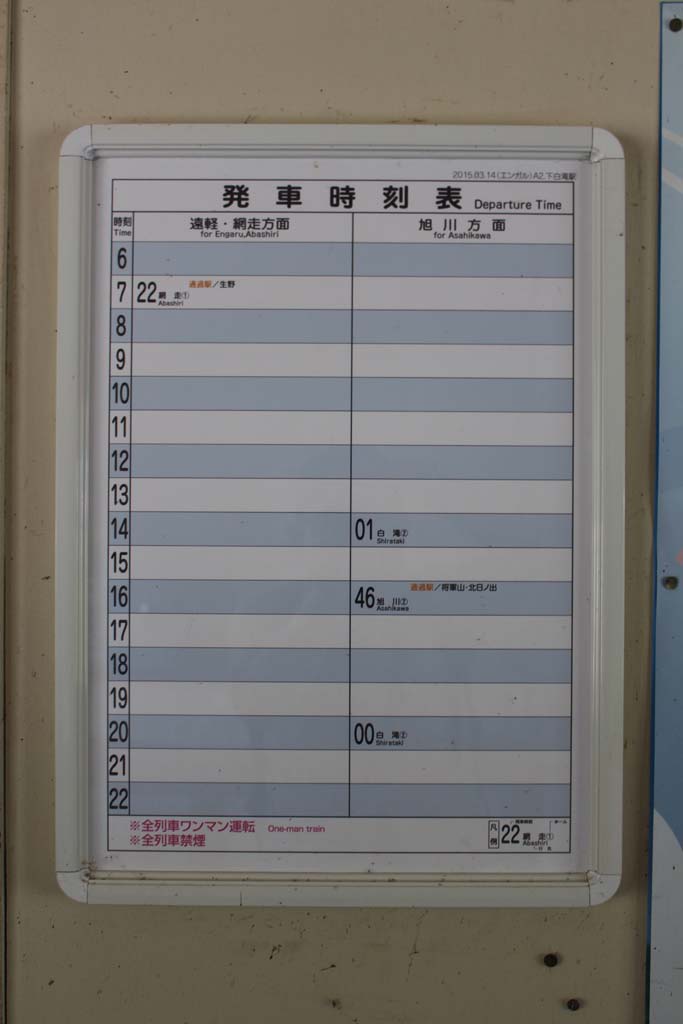 2015.03.14(エンガル)A2.下白滝駅
発車時刻表 Departure Time
時刻 遠軽・網走方面 旭川方面
Time for Engaru,Abashiri for Asahikawa
6
7 22 網走① 通過駅/生野
Abashiri
8
9
10
11
12
13
14 01 白滝②
Shirataki
15
16 46 旭川② 通過駅/将軍山・北日ノ出
Asahikawa
17
18
19
20 00 白滝②
Shirataki
21
22
※全列車ワンマン運転 One-man train
※全列車禁煙
凡例 22 網走①
Abashiri